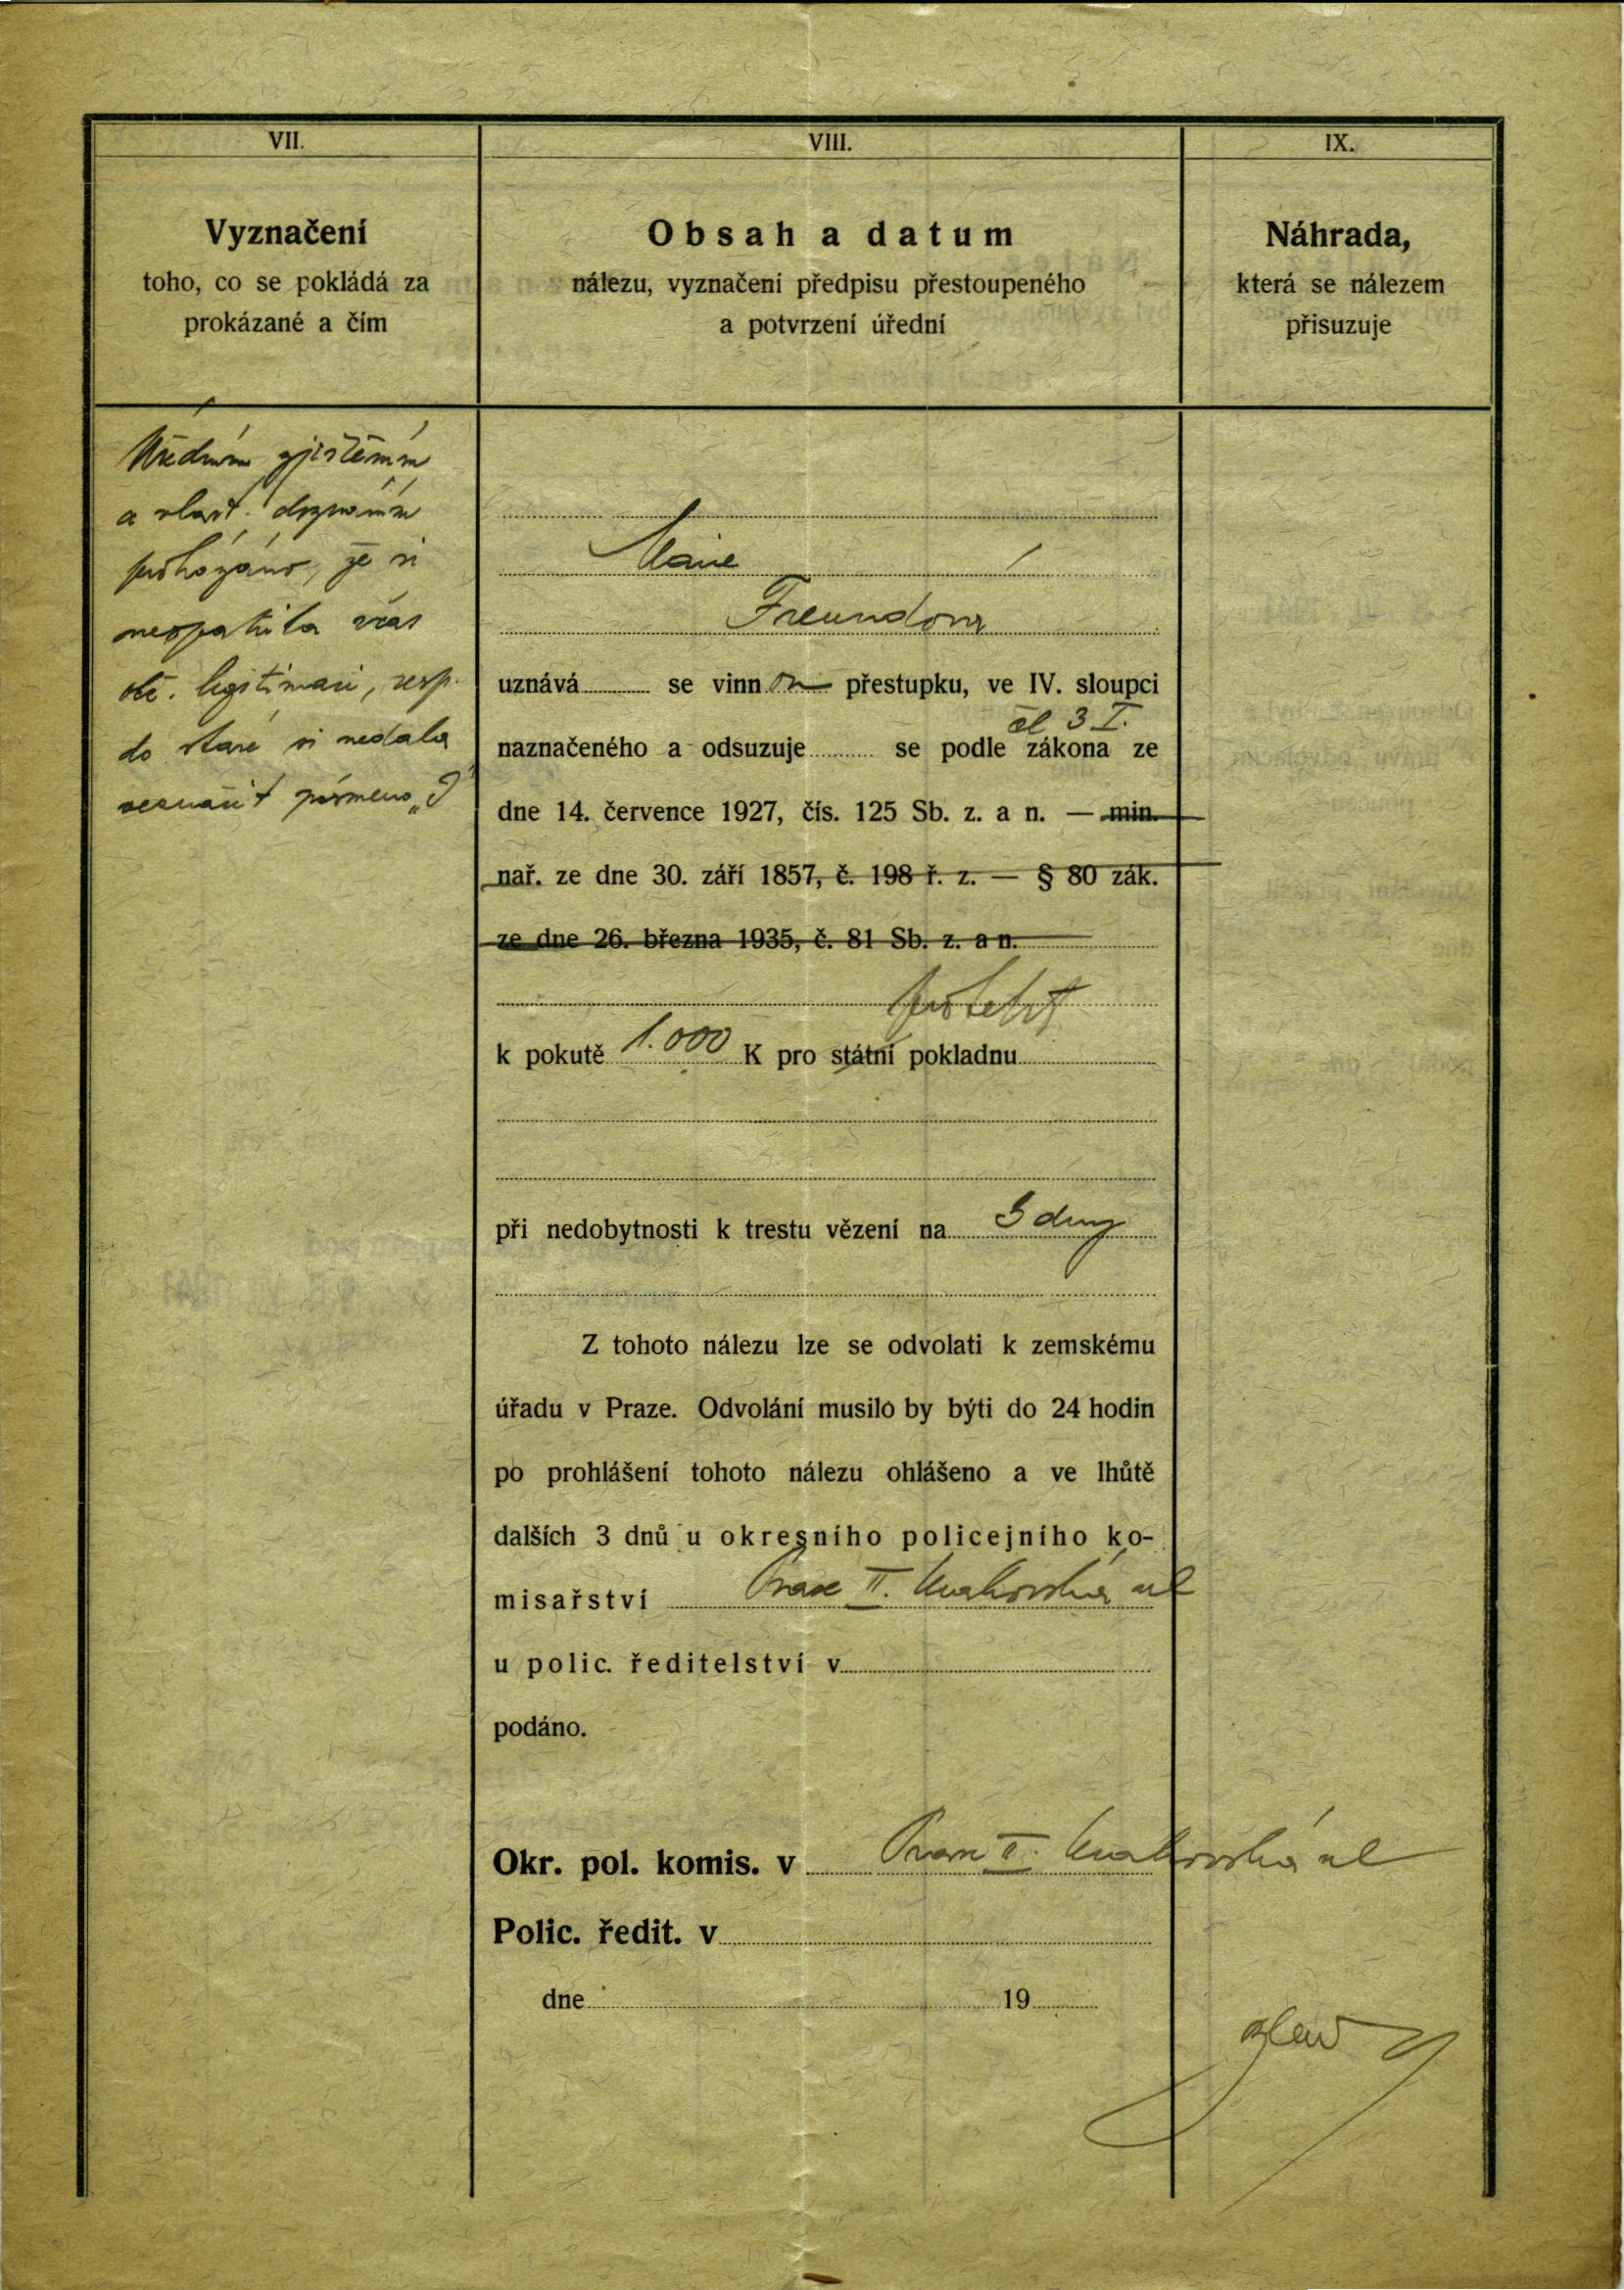 VII.
Vyznačení
toho, co se pokládá za
prokázané a čím
Úředním zjištěním
a vlast. doznáním
prokázáno, že si
neopatřila včas
obč. legitimaci, resp.
do staré si nedala
vesnačit písmeno „J
VIII.
Obsah a datum
nálezu, vyznačení předpisu přestoupeného
a potvrzení úřední
Marie
Freundova
uznává se vinnou přestupku, ve IV. sloupci
čl 3 I.
naznačeného a odsuzuje se podle zákona ze
dne 14. července 1927, čís. 125 Sb. z. a n. — min.
nař. ze dne 30. září 1857, č. 198 ř. z. — § 80 zák.
ze dne 26. března 1935, č. 81 Sb. z. a n.
protekt
k pokutě 1.000 K pro státní pokladnu
při nedobytnosti k trestu vězení na dny
Z tohoto nálezu lze se odvolati k zemskému
úřadu v Praze. Odvolání musilo by býti do 24 hodin
po prohlášení tohoto nálezu ohlášeno a ve lhůtě
dalších 3 dnů u okresního policejního ko-
misařství Praze II. Krakovská ul
u polic. ředitelství v
podáno.
Okr. pol. komis. v Praze II. Krakovská ul
Polic. ředit. v
dne 19
IX.
Náhrada,
která se nálezem
přisuzuje